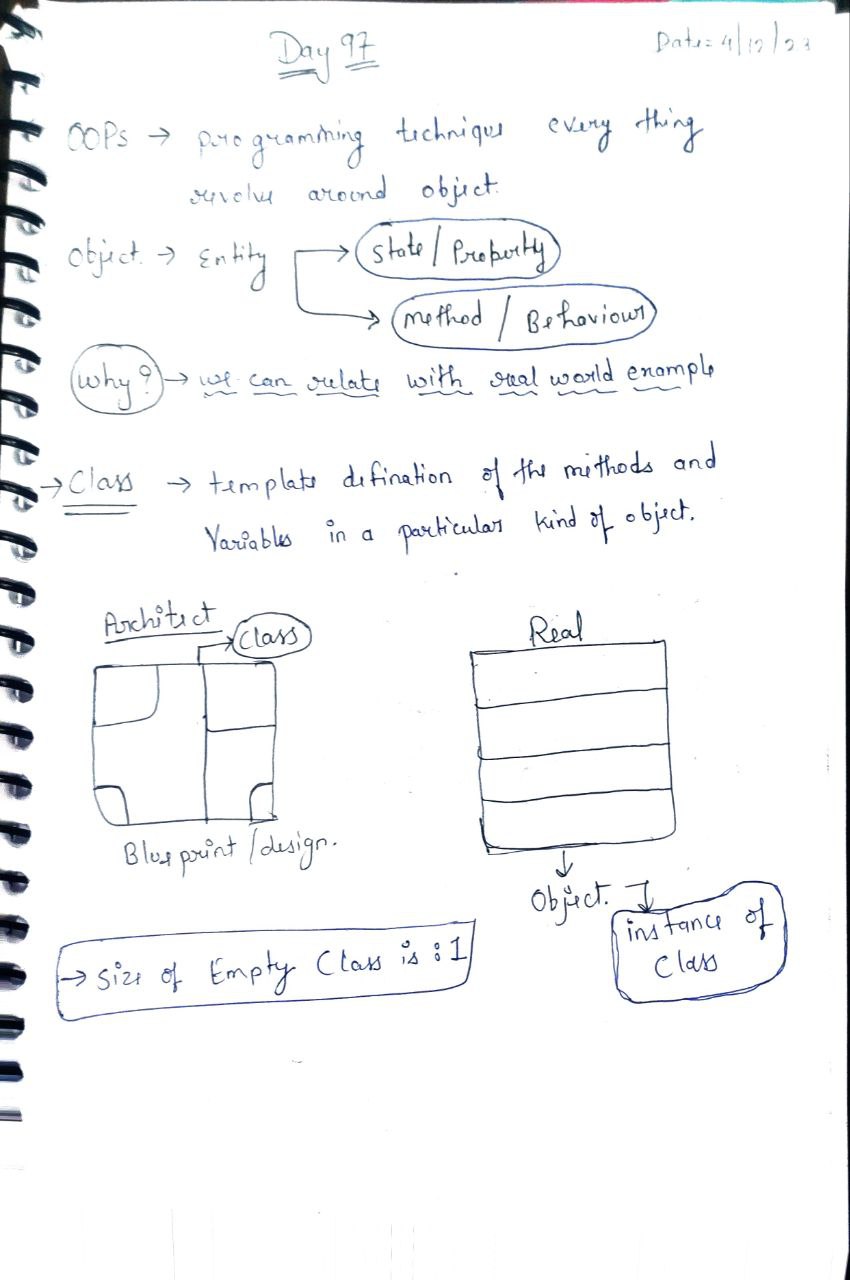 Day 97
Date: 4/12/23
OOPs → programming technique every thing
revolve around object.
Object. → Entity
State / Property
method / Behaviour
Why? → we can relate with real world example
→ Class → template defination of the methods and
Variables in a particular kind of object.
Architect
Class
Real
Blueprint / design.
Object.
instance of
Class
→ Size of Empty Class is : 1